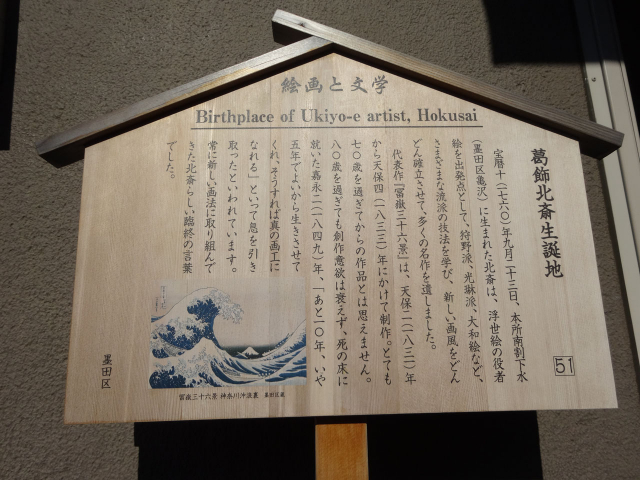 絵画と文学
Birthplace of Ukiyo-e artist, Hokusai
51
葛飾北斎生誕地
宝暦十(一七六〇)年九月二十三日、本所南割下水
(墨田区亀沢)に生まれた北斎は、浮世絵の役者
絵を出発点として、狩野派、光琳派、大和絵など、
さまざまな流派の技法を学び、新しい画風をどん
どん確立させて、多くの名作を遺しました。
代表作『冨嶽三十六景』は、天保二(一八三一)年
から天保四(一八三三)年にかけて制作。とても
七〇歳を過ぎてからの作品とは思えません。
八〇歳を過ぎても創作意欲は衰えず、死の床に
就いた嘉永二(一八四九)年、「あと一〇年、いや
五年でよいから生きさせて
くれ、そうすれば真の画工に
なれる」といって息を引き
取ったといわれています。
常に新しい画法に取り組んで
きた北斎らしい臨終の言葉
でした。
冨嶽三十六景 神奈川沖浪裏 墨田区蔵
墨田区